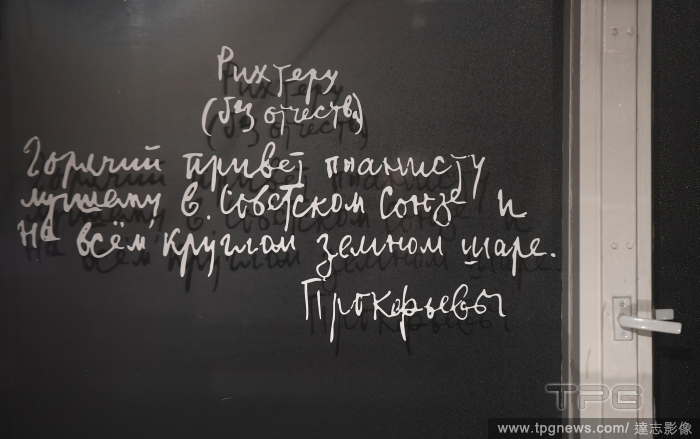 Рихтеру
(без отчества)
Горячий привет пианисту
лучшему в Советском Союзе и
на всём круглом земном шаре.
Прокофьевы
TPG
www.tpgnews.com/ 達志影像